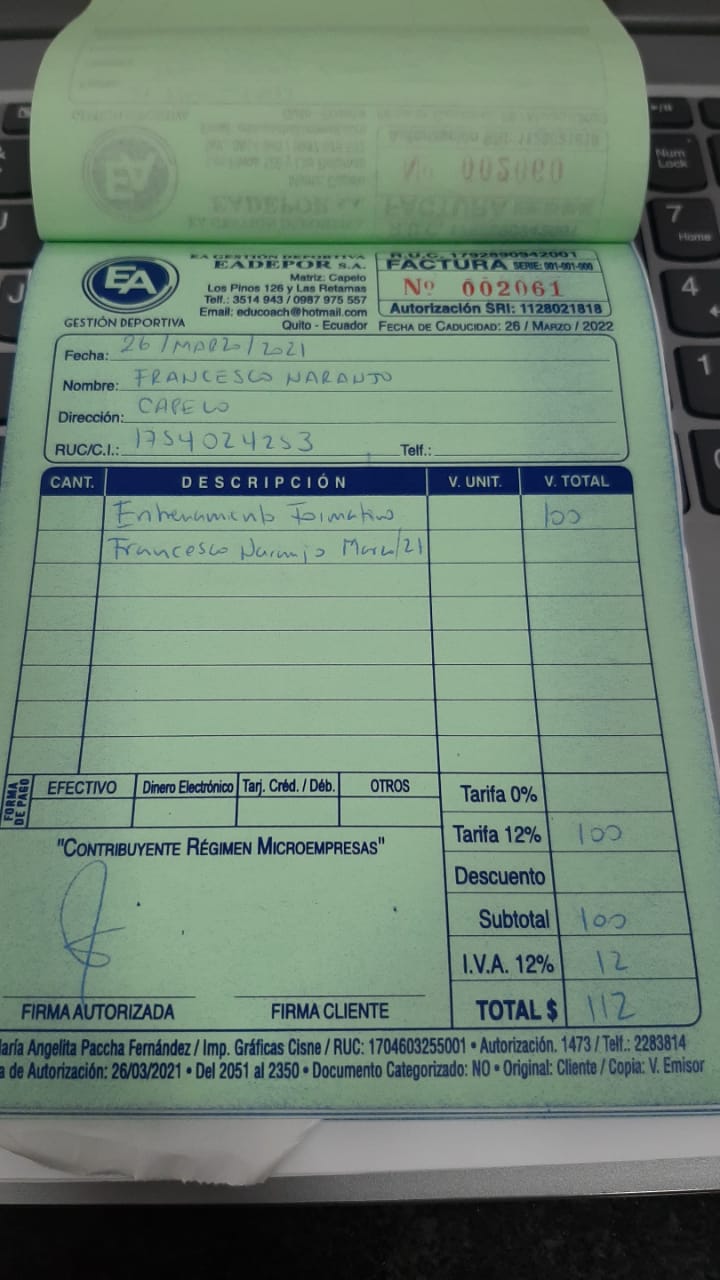 Nº 002060
EA
GESTIÓN DEPORTIVA
EA GESTIÓN DEPORTIVA
EADEPOR S.A.
Matriz: Capelo
Los Pinos 126 y Las Retamas
Telf.: 3514 943 / 0987 975 557
Email: educoach@hotmail.com
Quito - Ecuador
R.U.C. 1792890942001
FACTURA SERIE: 001-001-000
Nº 002061
Autorización SRI: 1128021818
FECHA DE CADUCIDAD: 26 / MARZO / 2022
Fecha: 26/MARZO/2021
Nombre: FRANCESCO NARANJO
Dirección: CAPELO
RUC/C.I.: 1754024253 Telf.:
CANT. DESCRIPCIÓN V. UNIT. V. TOTAL
Entrenamiento Formativo 100
Francesco Naranjo Marzo/21
FORMA DE PAGO EFECTIVO Dinero Electrónico Tarj. Créd. / Déb. OTROS
Tarifa 0%
Tarifa 12% 100
"CONTRIBUYENTE RÉGIMEN MICROEMPRESAS"
Descuento
Subtotal 100
I.V.A. 12% 12
TOTAL $ 112
FIRMA AUTORIZADA FIRMA CLIENTE
aría Angelita Paccha Fernández / Imp. Gráficas Cisne / RUC: 1704603255001 • Autorización. 1473 / Telf.: 2283814
a de Autorización: 26/03/2021 • Del 2051 al 2350 • Documento Categorizado: NO • Original: Cliente / Copia: V. Emisor
Num Lock
7
Home
4
1